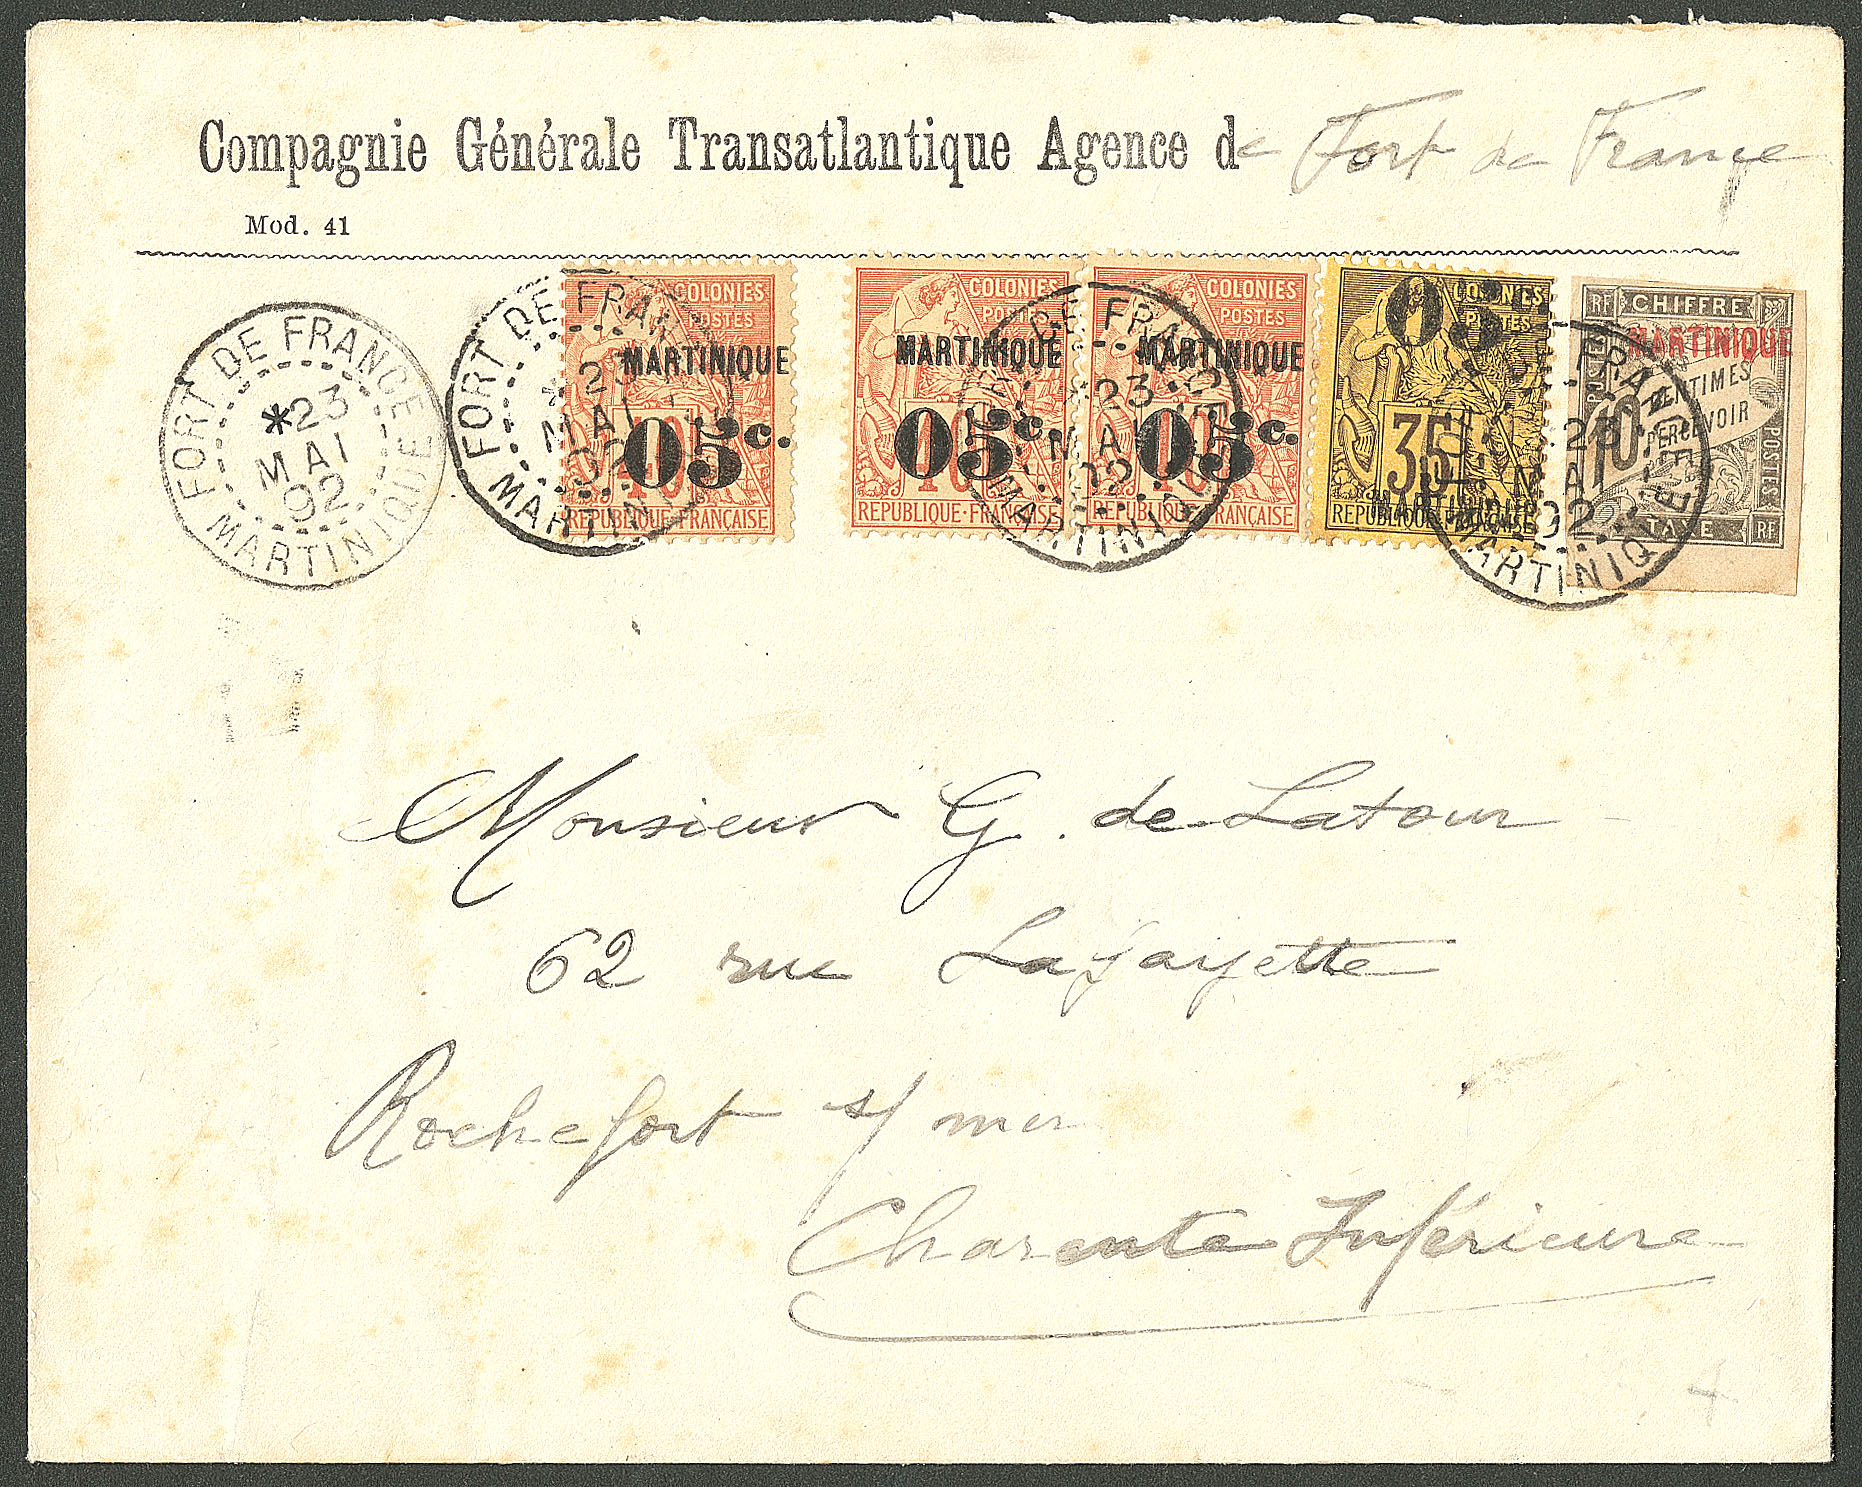 Compagnie Générale Transatlantique Agence de Fort de France
Mod. 41
FORT DE FRANCE
*23
MAI
92
MARTINIQUE
FORT DE FRAN
*23
MAI
92
MARTIN
COLONIES
POSTES
MARTINIQUE
05c.
10
REPUBLIQUE·FRANÇAISE
COLONIES
POSTES
MARTINIQUE
05c.
10
REPUBLIQUE·FRANÇAISE
DE FRA
*23
MAI
92
MARTINIQUE
COLONIES
POSTES
MARTINIQUE
05c.
10
REPUBLIQUE·FRANÇAISE
05c
COLONIES
POSTES
35
MARTINIQUE
REPUBLIQUE·FRANÇAISE
FRAN
23
MAI
92
MARTINIQUE
RF CHIFFRE
MARTINIQUE
10
CENTIMES
PERCEVOIR
POSTES
TAXE RF
Monsieur G. de Latour
62 rue Lafayette
Rochefort s/ mer
Charente Inférieure